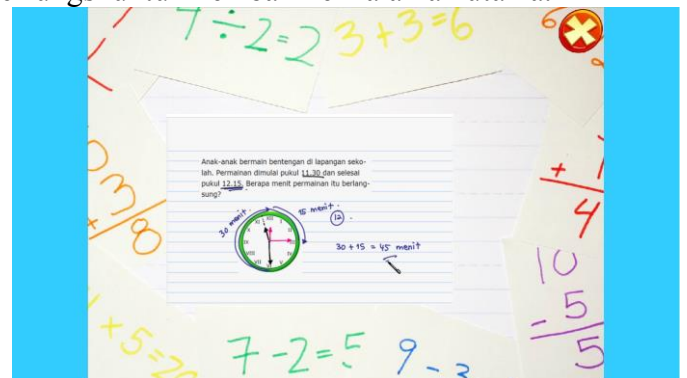 7 ÷ 2 = 2
3 + 3 = 6
6
Anak-anak bermain bentengan di lapangan seko-
lah. Permainan dimulai pukul 11.30 dan selesai
pukul 12.15. Berapa menit permainan itu berlang-
sung?
30 menit
15 menit
12
30 + 15 = 45 menit
+ 1
4
3
8
10
- 5
5
+ 5 = 20
7 - 2 = 5
9 - 3